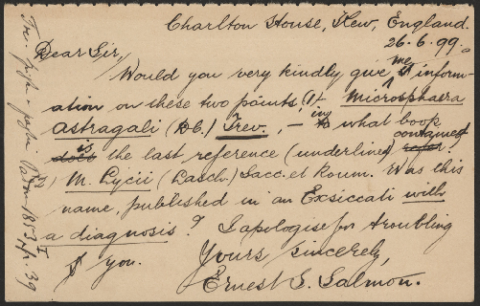 Charlton House, Kew, England.
26.6.99.
Dear Sir,
Would you very kindly give me inform-
ation on these two points? 1. Microsphaera
Astragali (DC.) Trev., — in what book
is the last reference (underlined) contained?
2) M. Lycii (Lasch.) Sacc. et Roum. Was this
name published in an Exsiccati with
a diagnosis? I apologise for troubling
you.
Yours sincerely,
Ernest S. Salmon.
1853, p. 39